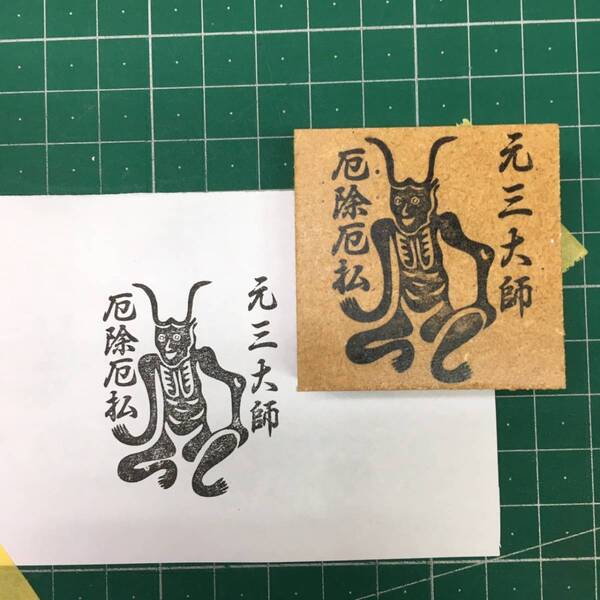 元三大師
厄除厄払
元三大師
厄除厄払